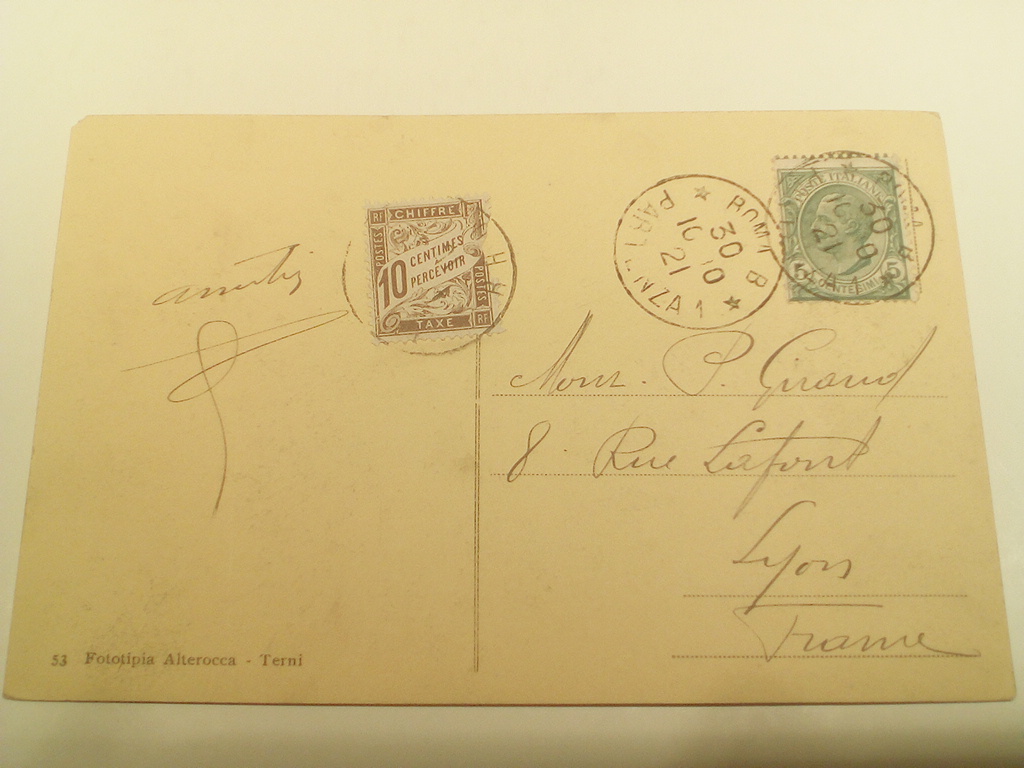 RF CHIFFRE
POSTES
10 CENTIMES
À
PERCEVOIR
POSTES
TAXE RF
ROMA B
30 10
10
21
PARTENZA 1
POSTE ITALIANE
5 5
CENTESIMI
30 10
10
21
Mons. P. Giraud
8 Rue Lafont
Lyon
France
53 Fototipia Alterocca - Terni